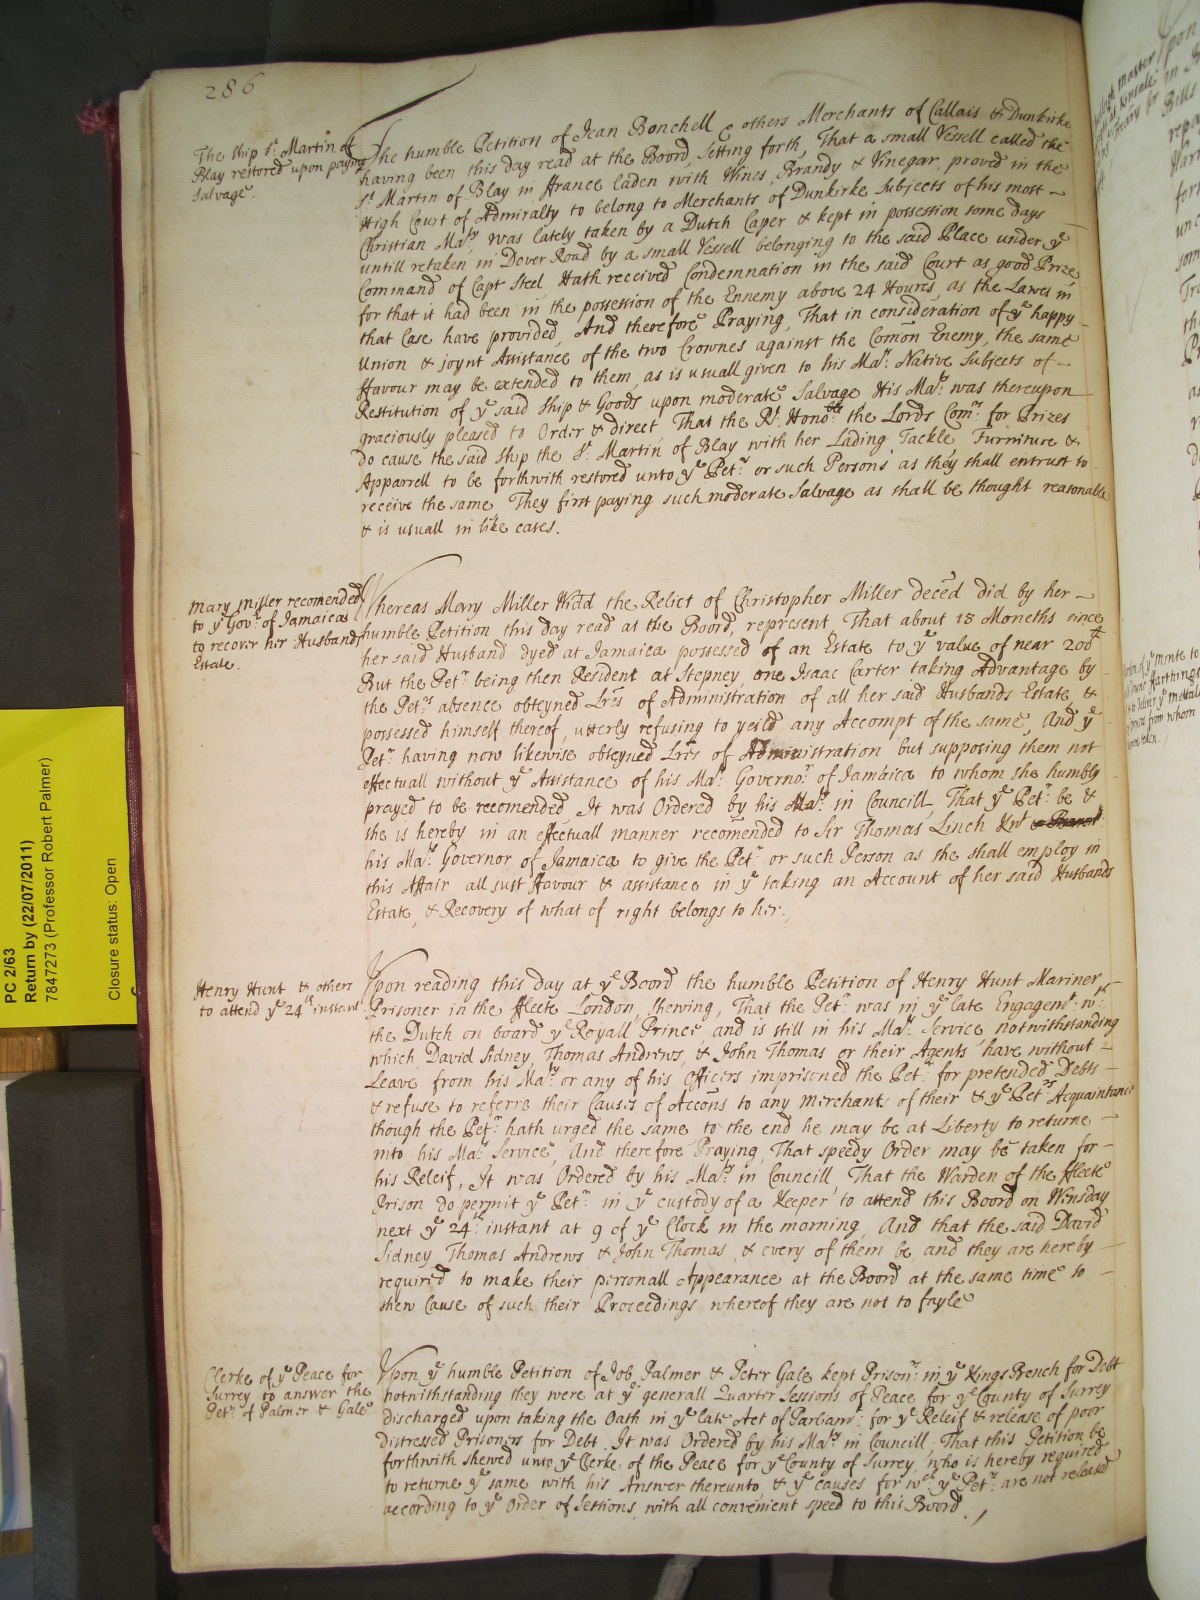 286
The ship St. Martin of
Blay restored upon paying
Salvage.
The humble Petition of Jean Bonchell & others Merchants of Callais & Dunkirke
having been this day read at the Boord, Setting forth, That a small Vessell called the
St. Martin of Blay in ffrance laden with Wines, Brandy & Vinegar, proved in the
High Court of Admiralty to belong to Merchants of Dunkirke Subjects of his most
Christian Maty. was lately taken by a Dutch Caper & kept in possession some days
untill retaken in Dover Road by a small Vessell belonging to the said Place under ye
Command of Capt Steel Hath received Condemnation in the said Court as good Prize
for that it had been in the possession of the Ennemy above 24 Houres, as the Lawes in
that Case have provided, And therefore Praying, That in consideration of ye happy
Union & joynt Assistance of the two Crownes against the Comon Enemy, the same
ffavour may be extended to them, as is usuall given to his Mats. Native Subjects of
Restitution of ye said Ship & Goods upon moderate Salvage His Maty. was thereupon
graciously pleased to Order & direct That the Rt. Honoble. the Lords Comrs. for Prizes
do cause the said Ship the St. Martin of Blay with her Lading Tackle Furniture &
Apparrell to be forthwith restored unto ye Petrs. or such Persons as they shall entrust to
receive the same, They first paying such moderate Salvage as shall be thought reasonable
& is usuall in like cases.
Mary Miller recomended
to ye Govr. of Jamaica
to recover her Husbands
Estate.
Whereas Mary Miller Widd the Relict of Christopher Miller deced did by her
humble Petition this day read at the Boord, represent That about 18 Moneths since
her said Husband dyed at Jamaica possessed of an Estate to ye value of near 200£
But the Petr. being then Resident at Stepney, one Isaac Carter taking Advantage by
the Petrs. absence obteyned Lres of Administration of all her said Husbands Estate, &
possessed himself thereof, utterly refusing to yeild any Accompt of the same, And ye
Petr. having now likewise obteyned Lres of Administration but supposing them not
effectuall without ye Assistance of his Mats. Governor. of Jamaica to whom she humbly
prayed to be recomended It was Ordered by his Maty. in Councill, That ye Petr. be &
she is hereby in an effectuall manner recomended to Sir Thomas Linch Knt
his Mats. Governor of Jamaica to give the Petr. or such Person as she shall employ in
this Affair all just ffavour & assistance in ye taking an Account of her said Husbands
Estate, & Recovery of what of right belongs to her.
Henry Hunt & others
to attend ye 24th instant
Upon reading this day at ye Boord the humble Petition of Henry Hunt Mariner
Prisoner in the ffleete London, shewing, That the Petr. was in ye late Engagemt. wth.
the Dutch on board ye Royall Prince and is still in his Mats. Service, notwithstanding
which, David Sidney, Thomas Andrews, & John Thomas or their Agents have without
Leave from his Maty. or any of his Officers imprisoned the Petr. for pretended Debts
& refuse to referre their Causes of Accons to any Merchants of their & ye Petrs Acquaintance
though the Petr. hath urged the same to the end he may be at Liberty to returne
into his Mats. Service, And therefore Praying, That speedy Order may be taken for
his Releif, It was Ordered by his Maty. in Councill, That the Warden of the ffleete
Prison do permit ye Petr. in ye custody of a Keeper to attend this Boord on Wensday
next ye 24th instant at 9 of ye Clock in the morning, And that the said David
Sidney, Thomas Andrews & John Thomas, & every of them be, and they are hereby
required to make their personall Appearance at the Boord at the same time to
shew Cause of such their Proceedings whereof they are not to fayle
Clerke of ye Peace for
Surrey to answer the
Petn. of Palmer & Gale
Upon ye humble Petition of Job Palmer & Peter Gale kept Prisonrs. in ye Kings Bench for Debt
notwithstanding they were at ye generall Quarter Sessions of Peace for ye County of Surrey
discharged upon taking the Oath in ye late Act of Parliamt. for ye Releif & release of poor
distressed Prisoners for Debt. It was Ordered by his Maty. in Councill. That this Petition be
forthwith shewed unto ye Clerke of the Peace for ye County of Surrey, who is hereby required
to returne ye same with his Answer thereunto, & ye causes for wch. ye Petrs. are not released
according to ye Order of Sessions, with all convenient speed to this Boord.
PC 2/63
Return by (22/07/2011)
7847273 (Professor Robert Palmer)
Closure status: Open